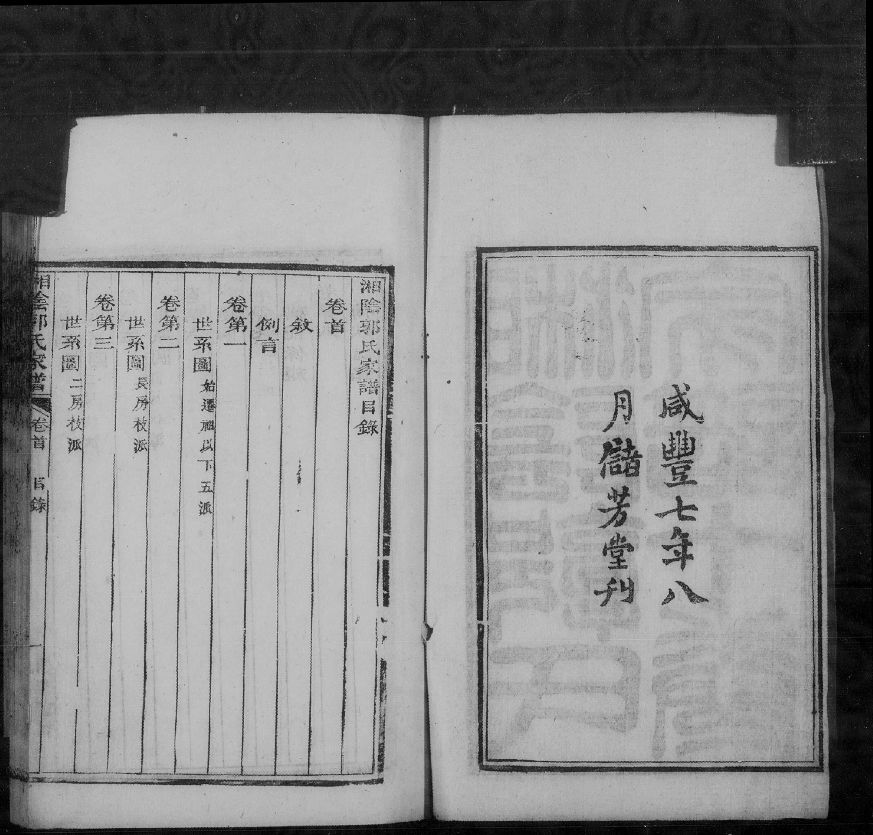 咸豐七年八
月儲芳堂刋
湘陰郭氏家譜目錄
卷首
敘
例言
卷第一
世系圖 始遷祖以下五派
卷第二
世系圖 長房枝派
卷第三
世系圖 二房枝派
湘陰郭氏家譜 卷首 目錄